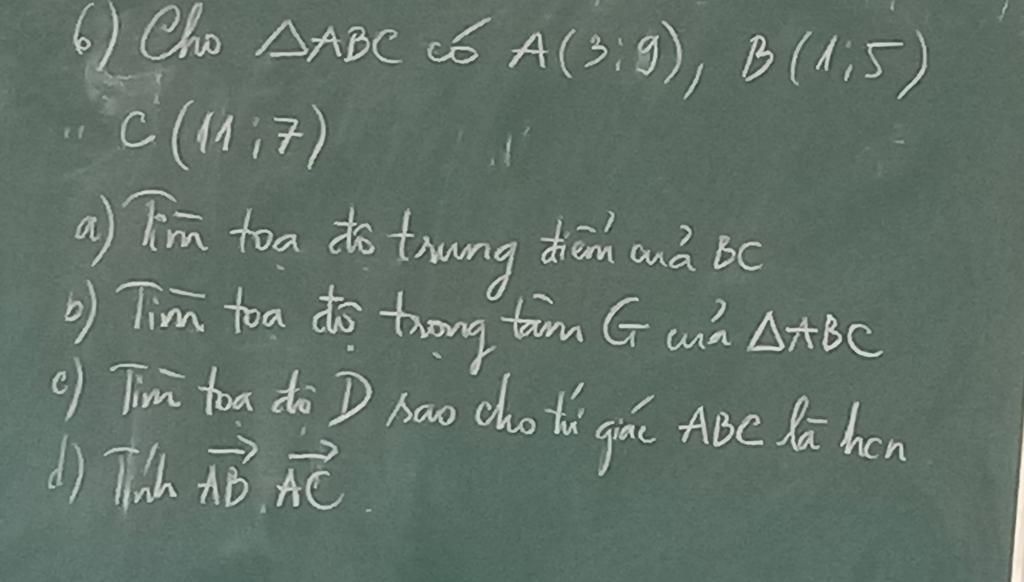 6) Cho △ABC có A(3;9), B(1;5)
C(11;7)
a) Tìm tọa độ trung điểm của BC
b) Tìm tọa độ trọng tâm G của △ABC
c) Tìm tọa độ D sao cho tứ giác ABC là hcn
d) Tính \overrightarrow{AB}.\overrightarrow{AC}